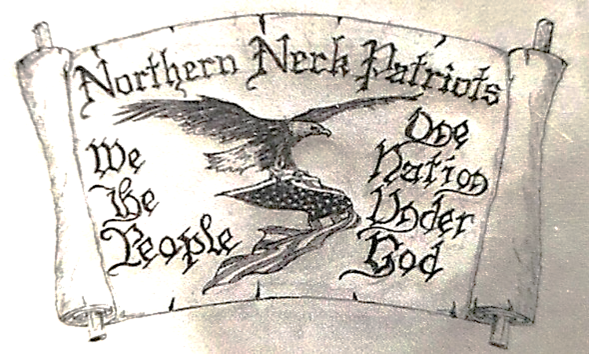 Northern Neck Patriots
We
The
People
One
Nation
Under
God